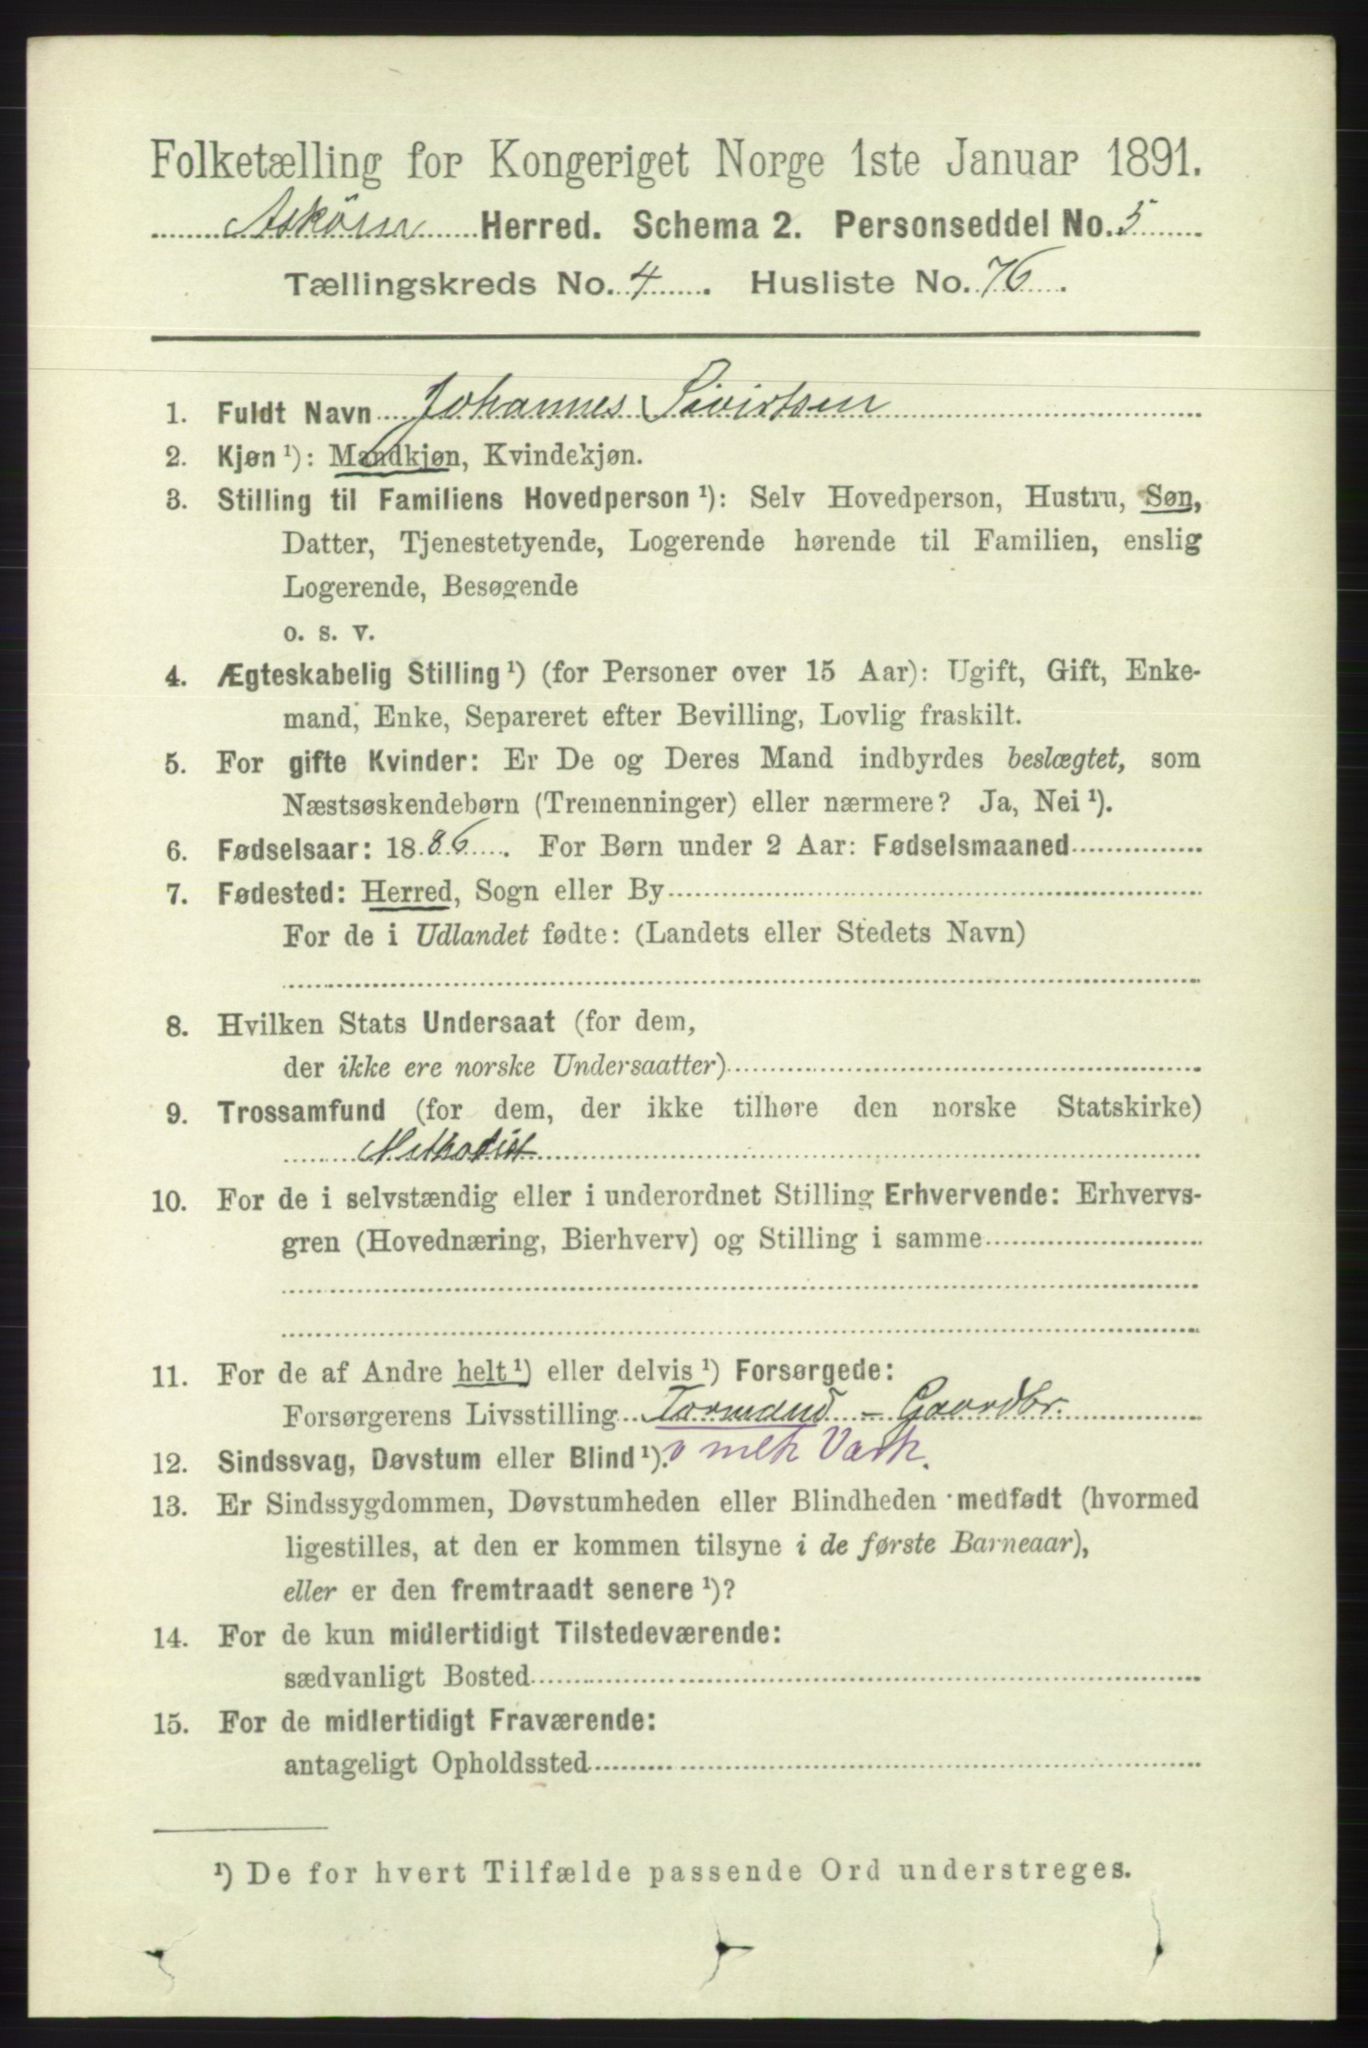 Folketælling for Kongeriget Norge 1ste Januar 1891.
Askøen Herred. Schema 2. Personseddel No. 5
Tællingskreds No. 4. Husliste No. 76.
1. Fuldt Navn Johannes Sivirtsen
2. Kjøn ¹): Mandkjøn, Kvindekjøn.
3. Stilling til Familiens Hovedperson ¹): Selv Hovedperson, Hustru, Søn,
Datter, Tjenestetyende, Logerende hørende til Familien, enslig
Logerende, Besøgende
o. s. v.
4. Ægteskabelig Stilling ¹) (for Personer over 15 Aar): Ugift, Gift, Enke-
mand, Enke, Separeret efter Bevilling, Lovlig fraskilt.
5. For gifte Kvinder: Er De og Deres Mand indbyrdes beslægtet, som
Næstsøskendebørn (Tremenninger) eller nærmere? Ja, Nei ¹).
6. Fødselsaar: 1886. For Børn under 2 Aar: Fødselsmaaned
7. Fødested: Herred, Sogn eller By
For de i Udlandet fødte: (Landets eller Stedets Navn)
8. Hvilken Stats Undersaat (for dem,
der ikke ere norske Undersaatter)
9. Trossamfund (for dem, der ikke tilhøre den norske Statskirke)
Methodist
10. For de i selvstændig eller i underordnet Stilling Erhvervende: Erhvervs-
gren (Hovednæring, Bierhverv) og Stilling i samme
11. For de af Andre helt ¹) eller delvis ¹) Forsørgede:
Forsørgerens Livsstilling - Gaardbr.
12. Sindssvag, Døvstum eller Blind ¹).
13. Er Sindssygdommen, Døvstumheden eller Blindheden medfødt (hvormed
ligestilles, at den er kommen tilsyne i de første Barneaar),
eller er den fremtraadt senere ¹)?
14. For de kun midlertidigt Tilstedeværende:
sædvanligt Bosted
15. For de midlertidigt Fraværende:
antageligt Opholdssted
¹) De for hvert Tilfælde passende Ord understreges.